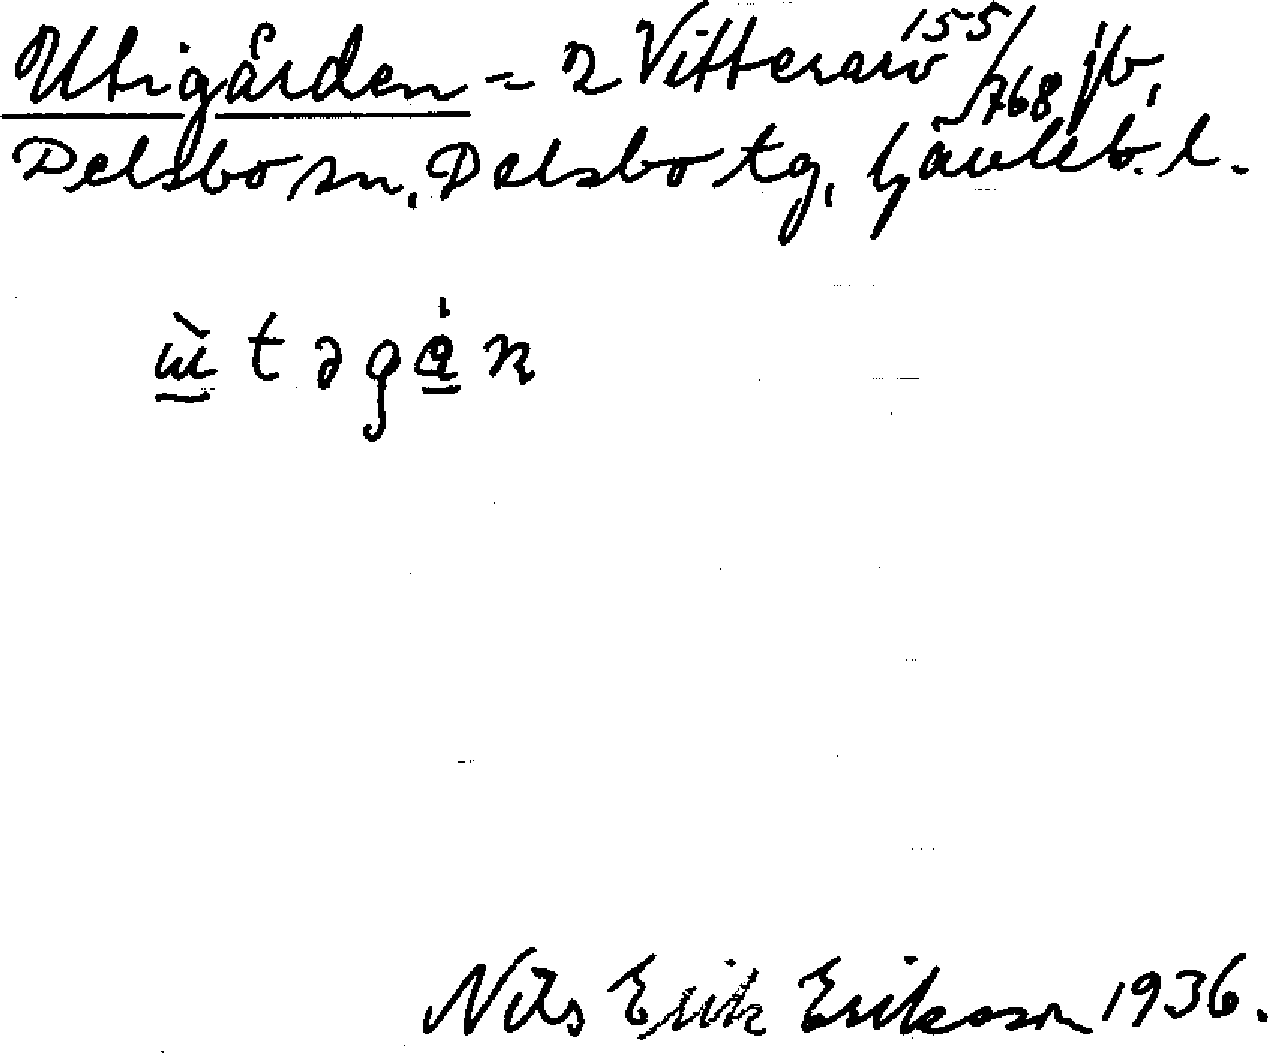 Utigården = 2 Vitterarv 155/768 jb,
Delsbo sn, Delsbo tg, Gävleb. l.
ẁtəgá̱n
Nils Erik Eriksson 1936.